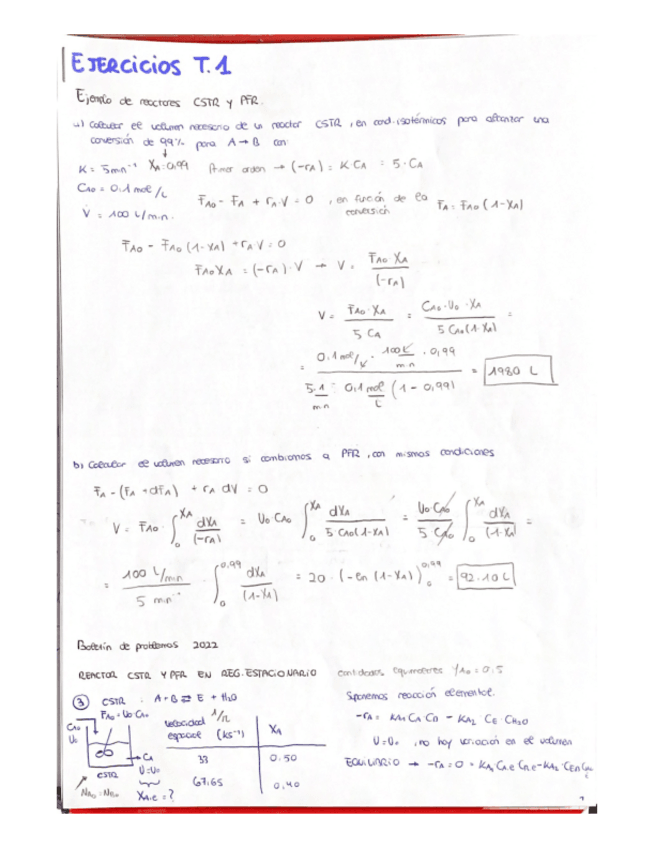 EJERCICIOS T.1
Ejemplo de reactores CSTR y PFR.
a) Calcular el volumen necesario de un reactor CSTR, en cond. isotérmicas para alcanzar una
conversión de 99% para A → B con:
K = 5 min⁻¹ XA = 0,99 Primer orden → (-rA) = K CA = 5·CA
CAo = 0.1 mol/L
V̇ = 100 L/min.
FAo - FA + rA·V = 0, en función de la conversión FA = FAo (1-XA)
FAo - FAo (1-XA) + rA·V = 0
FAoXA = (-rA)·V → V = FAo XA / (-rA)
V = FAo·XA / 5 CA = CAo·Uo·XA / 5 CAo(1-XA) =
= 0.1 mol/L · 100 L/min · 0,99 / 5 1/min · 0,1 mol/L (1-0,99) = 1980 L
b) Calcular el volumen necesario si cambiamos a PFR, con mismas condiciones
FA - (FA + dFA) + rA dV = 0
V = FAo ∫₀^XA dXA/(-rA) = Uo CAo ∫₀^XA dXA / 5 CAo(1-XA) = Uo CAo / 5 CAo ∫₀^XA dXA/(1-XA) =
= 100 L/min / 5 min⁻¹ · ∫₀^0,99 dXA/(1-XA) = 20·(-ln (1-XA))₀^0,99 = 92.10 L
Boletín de problemas 2022
REACTOR CSTR Y PFR EN REG. ESTACIONARIO cantidades equimolares YAo = 0.5
③ CSTR. A+B ⇄ E + H₂O
Suponemos reacción elemental.
FAo = Uo CAo
CAo
Uo
CSTR
CA
U = Uo
NAo = NBo
XA,e = ?
velocidad espacial (ks⁻¹) XA
33 0.50
67.65 0,40
-rA = KA1 CA CB - KA2 CE·CH2O
U = Uo, no hay variación en el volumen
EQUILIBRIO → -rA = 0 =
1